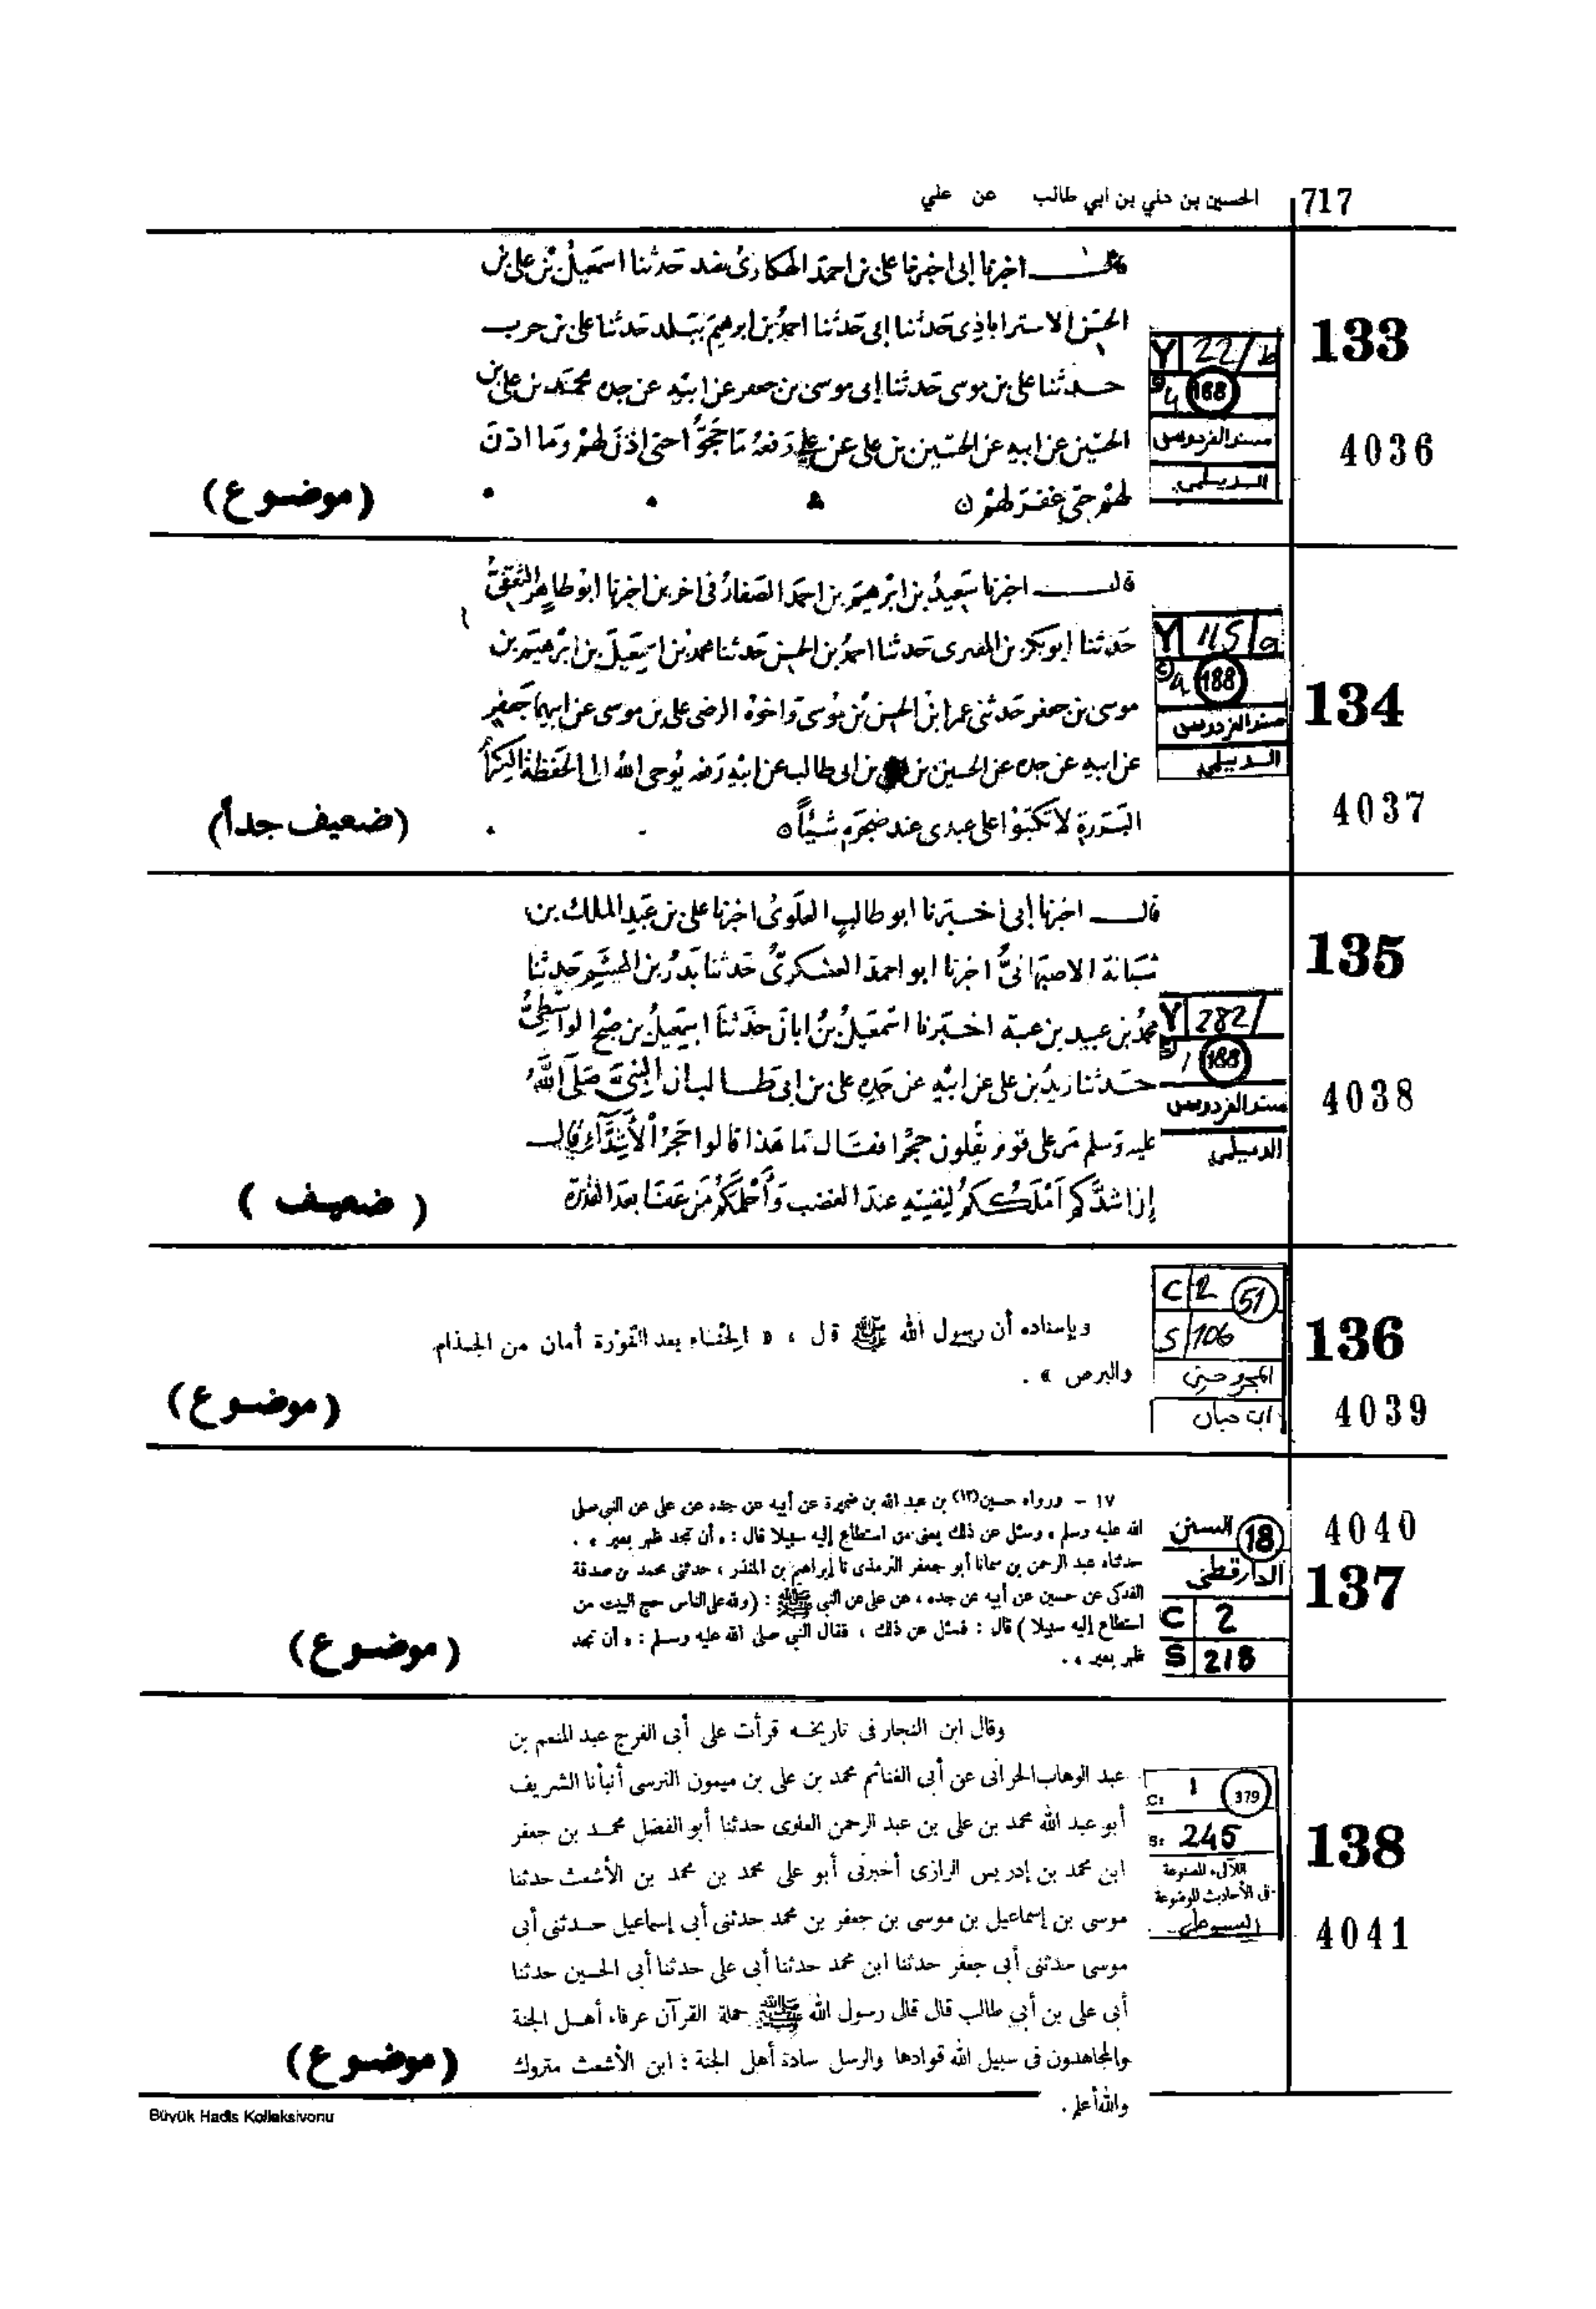 717 الحسين بن علي بن ابي طالب عن علي
133
قال اخبرنا ابى اخبرنا على بن احمد الهكارى حدثنا اسمعيل بن على بن
الحسن الاستراباذى حدثنا ابى حدثنا احمد بن ابرهيم ببلد حدثنا على بن حرب
حدثنا على بن موسى حدثنا ابى موسى بن جعفر عن ابيه عن جده محمد بن على بن
الحسين عن ابيه عن الحسين بن على عن على رفعه ما حجوا حتى اذن لهم وما اذن
لهم حتى غفر لهم
Y 22/b
188
مسند الفردوس
الديلمي
4036
(موضوع)
134
قال اخبرنا سعيد بن ابرهيم بن احمد الصفار فى اخرين اخبرنا ابو طاهر الثقفى
حدثنا ابو بكر بن المقرى حدثنا احمد بن الحسن حدثنا محمد بن اسمعيل بن ابرهيم بن
موسى بن جعفر حدثنى عمر ابن الحسن بن موسى واخوه الرضى على بن موسى عن ابيهما جعفر
عن ابيه عن جده عن الحسين بن بن ابى طالب عن ابيه رفعه يوحى الله الى الحفظة الكرام
البررة لا تكتبوا على عبدى عند ضجره شيئا
Y 115/a
4 188
مسند الفردوس
الديلمي
4037
(ضعيف جداً)
135
قال اخبرنا ابى اخبرنا ابو طالب العلوى اخبرنا على بن عبد الملك بن
شبانة الاصبهانى اخبرنا ابو احمد العسكرى حدثنا بدر بن الهيثم حدثنا
محمد بن عبيد بن عتبة اخبرنا اسمعيل بن ابان حدثنا اسمعيل بن صبح الواسطى
حدثنا زيد بن على عن ابيه عن جده على بن ابى طالب ان النبى صلى الله
عليه وسلم مر على قوم يقلون حجرا فقال ما هذا قالوا حجر الأشداء قال
إن اشدكم أملككم لنفسه عند الغضب وأحلمكم من عفا بعد القدرة
Y 282/
188
مسند الفردوس
الديلمي
4038
( ضعيف )
136
وبإسناده أن رسول الله ﷺ قال ، « الحِنّاء بعد النّوْرة أمان من الجذام
والبرص » .
C 2 51
S 106
المجروحين
ابن حبان
4039
(موضوع)
١٧ – ورواه حسين(١٣) بن عبد الله بن ضميرة عن أبيه عن جده عن على عن النبي صلى
الله عليه وسلم ، وسئل عن ذلك يعنى من استطاع إليه سبيلا قال : ، أن تجد ظهر بعير ، .
حدثناه عبد الرحمن بن سمانا أبو جعفر الترمذى نا إبراهيم بن المنذر ، حدثنى محمد بن صدقة
الفدكى عن حسين عن أبيه عن جده ، عن على عن النبي ﷺ : (ولله على الناس حج البيت من
استطاع إليه سبيلا) قال : فسئل عن ذلك ، فقال النبي صلى الله عليه وسلم : ، أن تجد
ظهر بعير ، .
4040
137
السنن 18
الدارقطني
C 2
S 218
(موضوع)
وقال ابن النجار فى تاريخه قرأت على أبى الفرج عبد المنعم بن
عبد الوهاب الحرانى عن أبى الغنائم محمد بن على بن ميمون النرسى أنبأنا الشريف
أبو عبد الله محمد بن على بن عبد الرحمن العلوى حدثنا أبو الفضل محمد بن جعفر
ابن محمد بن إدريس الرازى أخبرنى أبو على محمد بن محمد بن الأشعث حدثنا
موسى بن إسماعيل بن موسى بن جعفر بن محمد حدثنى أبى إسماعيل حدثنى أبى
موسى حدثنى أبى جعفر حدثنا ابن محمد حدثنا أبى على حدثنا أبى الحسين حدثنا
أبى على بن أبي طالب قال قال رسول الله ﷺ حملة القرآن عرفاء أهل الجنة
والمجاهدون فى سبيل الله قوادها والرسل سادة أهل الجنة : ابن الأشعث متروك
والله أعلم .
C: 1 379
S: 245
اللآلىء المصنوعة
فى الأحاديث الموضوعة
السيوطي
138
4041
(موضوع)
Büyük Hadis Kolleksivonu